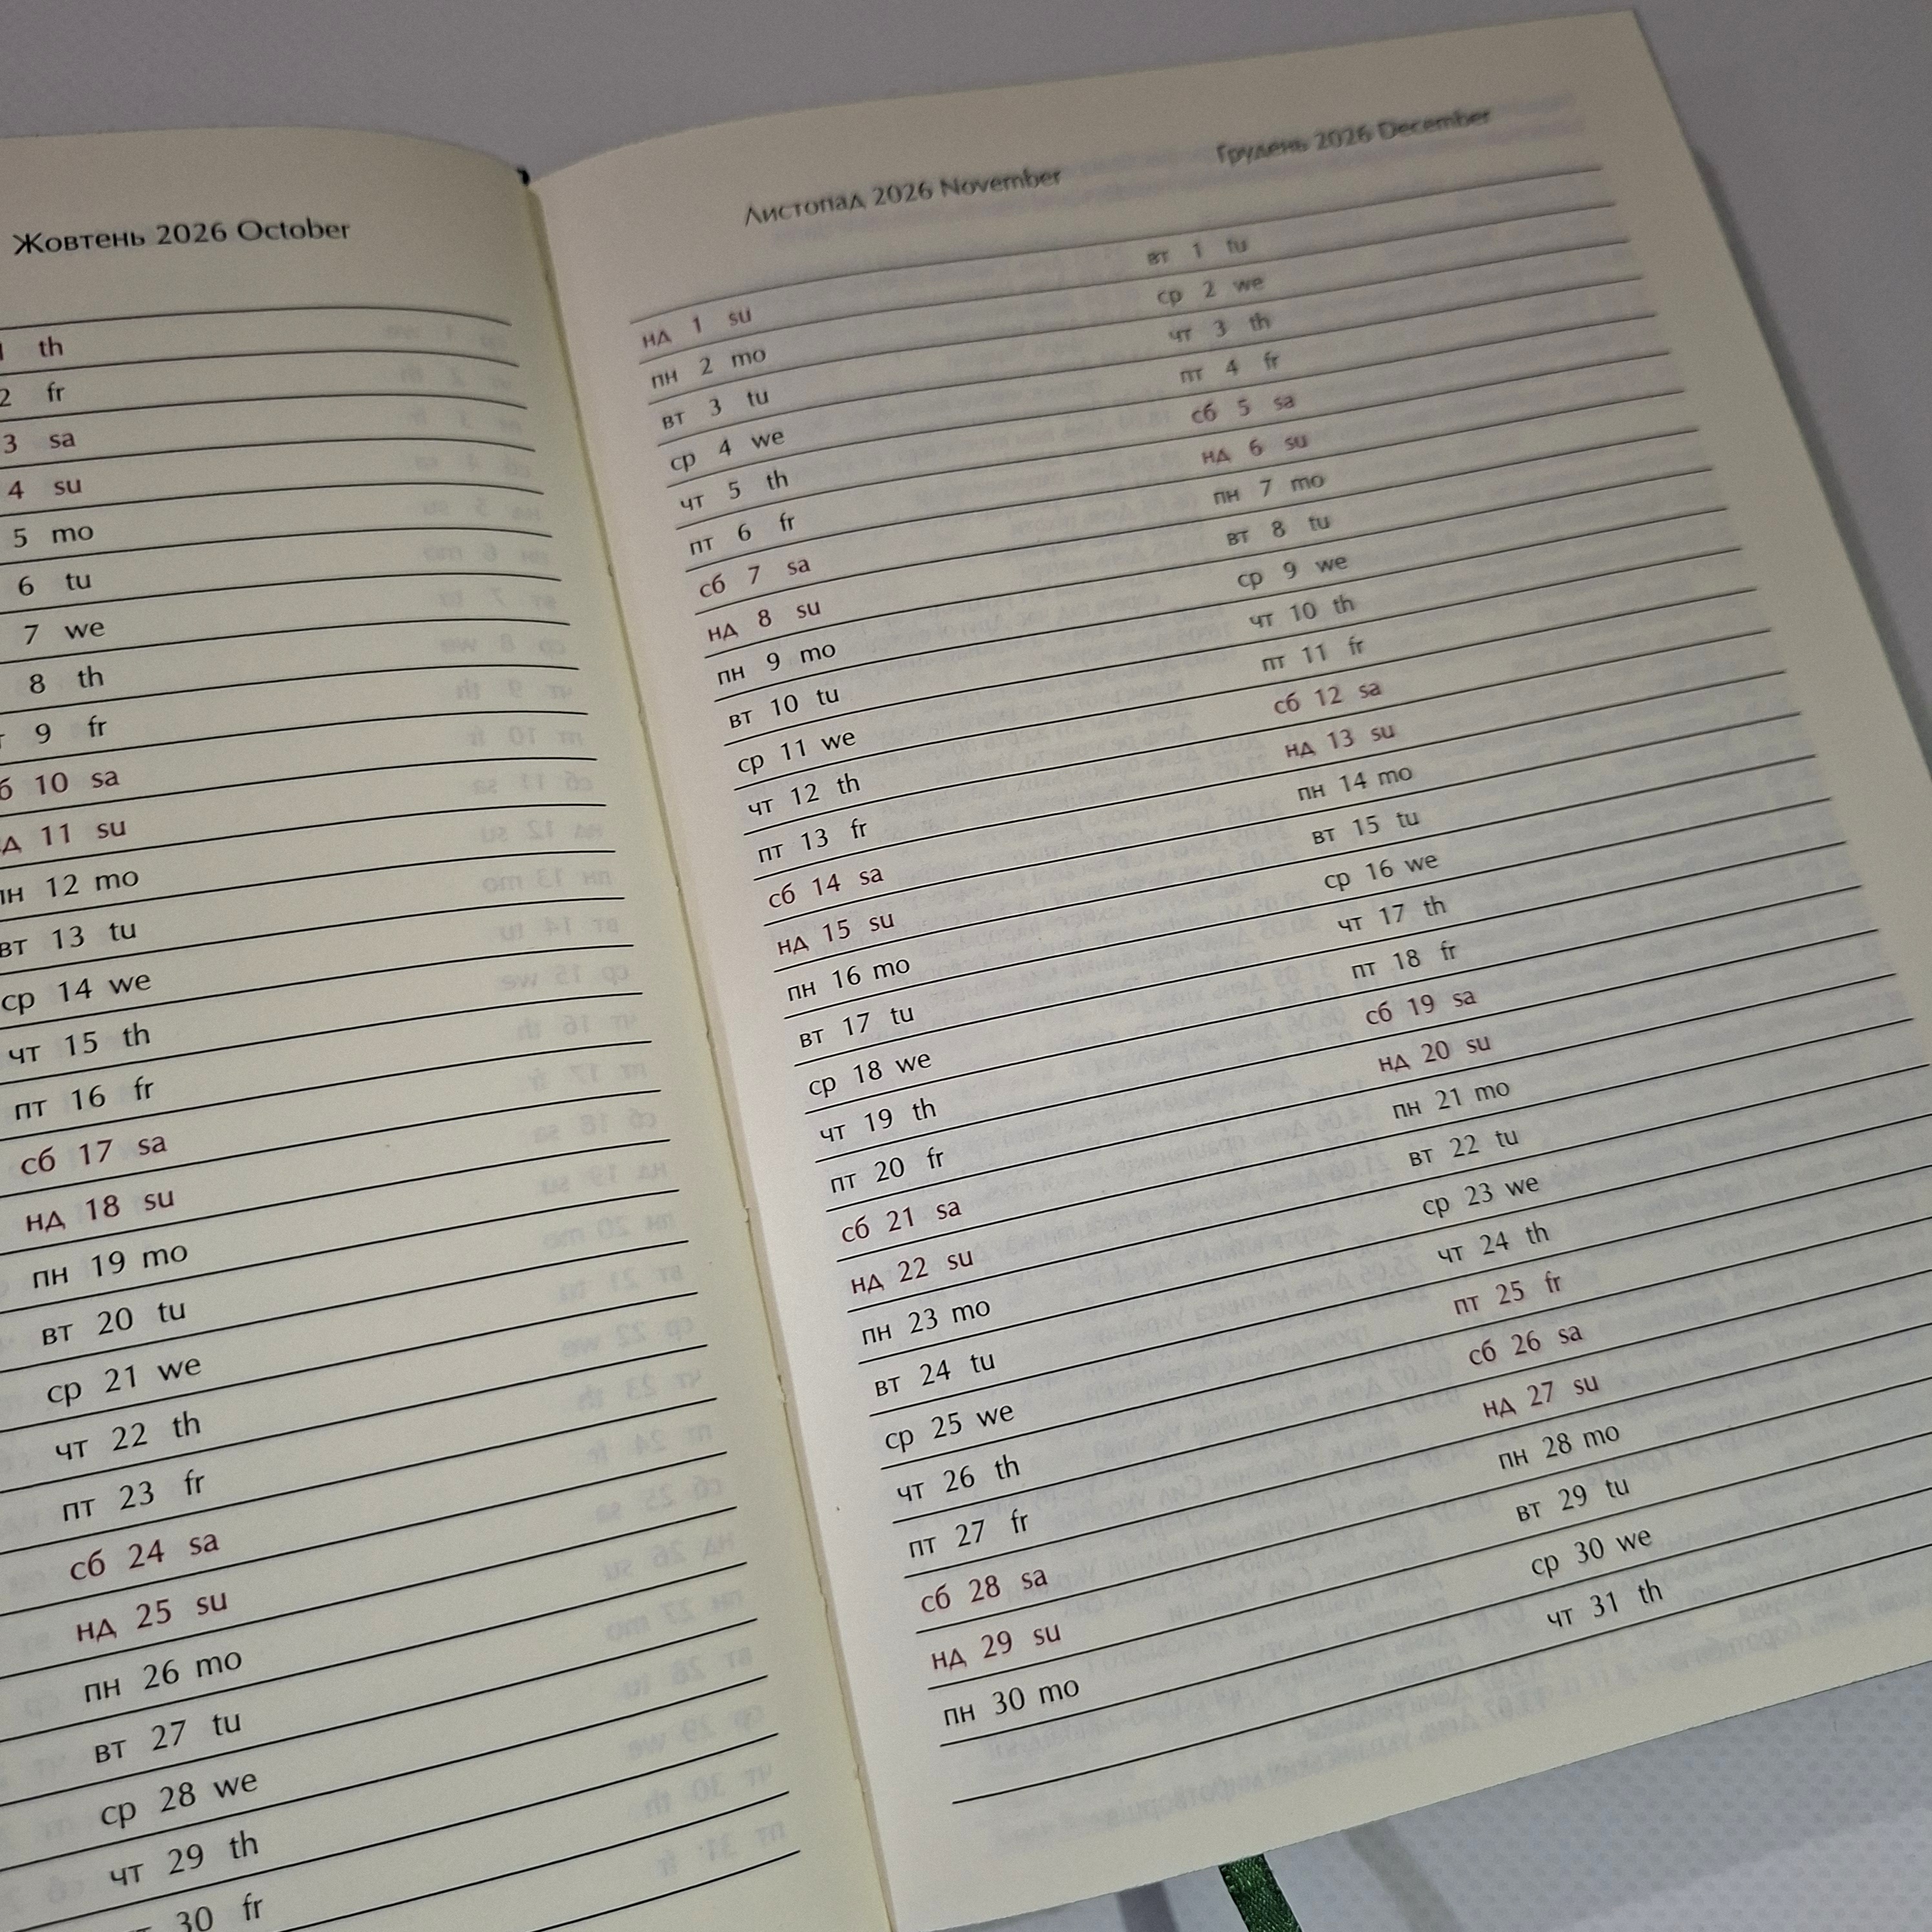 Жовтень 2026 October
1 th
2 fr
3 sa
4 su
5 mo
6 tu
7 we
8 th
9 fr
10 sa
11 su
12 mo
вт 13 tu
ср 14 we
чт 15 th
пт 16 fr
сб 17 sa
нд 18 su
пн 19 mo
вт 20 tu
ср 21 we
чт 22 th
пт 23 fr
сб 24 sa
нд 25 su
пн 26 mo
вт 27 tu
ср 28 we
чт 29 th
30 fr
Листопад 2026 November
нд 1 su
пн 2 mo
вт 3 tu
ср 4 we
чт 5 th
пт 6 fr
сб 7 sa
нд 8 su
пн 9 mo
вт 10 tu
ср 11 we
чт 12 th
пт 13 fr
сб 14 sa
нд 15 su
пн 16 mo
вт 17 tu
ср 18 we
чт 19 th
пт 20 fr
сб 21 sa
нд 22 su
пн 23 mo
вт 24 tu
ср 25 we
чт 26 th
пт 27 fr
сб 28 sa
нд 29 su
пн 30 mo
Грудень 2026 December
вт 1 tu
ср 2 we
чт 3 th
пт 4 fr
сб 5 sa
нд 6 su
пн 7 mo
вт 8 tu
ср 9 we
чт 10 th
пт 11 fr
сб 12 sa
нд 13 su
пн 14 mo
вт 15 tu
ср 16 we
чт 17 th
пт 18 fr
сб 19 sa
нд 20 su
пн 21 mo
вт 22 tu
ср 23 we
чт 24 th
пт 25 fr
сб 26 sa
нд 27 su
пн 28 mo
вт 29 tu
ср 30 we
чт 31 th